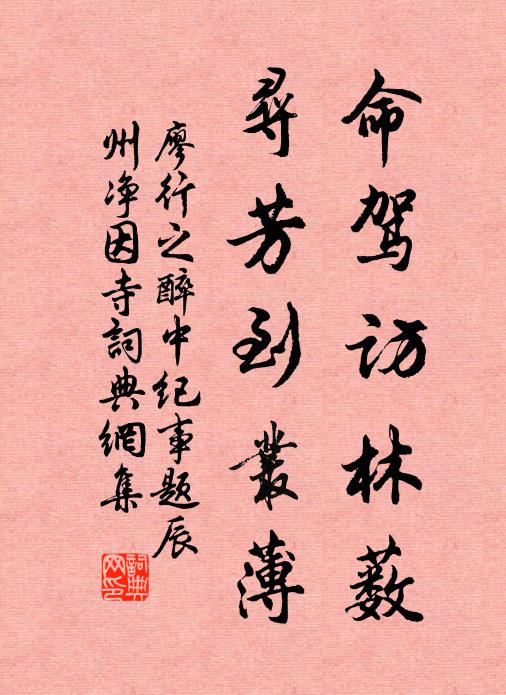 命駕訪林薮
尋芳到叢薄
廖行之醉中纪事題辰
州净因寺詞典網集
詞典网印